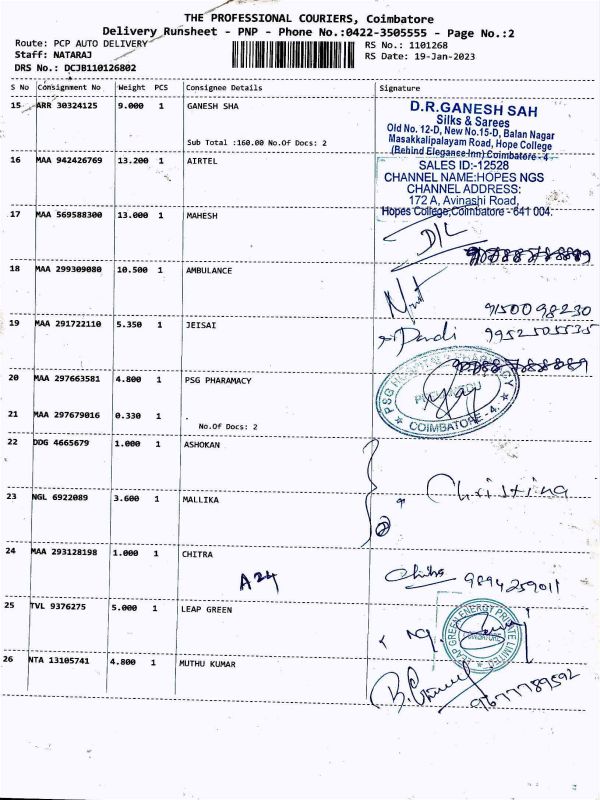 THE PROFESSIONAL COURIERS, Coimbatore
Delivery Runsheet - PNP - Phone No.:0422-3505555 - Page No.:2
Route: PCP AUTO DELIVERY
RS No.: 1101268
Staff: NATARAJ
RS Date: 19-Jan-2023
DRS No.: DCJB110126802
S No Consignment No Weight PCS Consignee Details Signature
15 ARR 30324125 9.000 1 GANESH SHA
Sub Total :160.00 No.Of Docs: 2
D.R.GANESH SAH
Silks & Sarees
Old No. 12-D, New No.15-D, Balan Nagar
Masakkalipalayam Road, Hope College
(Behind Elegance Inn) Coimbatore - 4
16 MAA 942426769 13.200 1 AIRTEL
SALES ID:-12528
CHANNEL NAME:HOPES NGS
CHANNEL ADDRESS:
172 A, Avinashi Road,
Hopes College,Coimbatore - 641 004.
17 MAA 569588300 13.000 1 MAHESH
D/L
18 MAA 299309080 10.500 1 AMBULANCE
9150098230
19 MAA 291722110 5.350 1 JEISAI
9952505535
20 MAA 297663581 4.800 1 PSG PHARAMACY
PSG HOSPITALS PHARMACY
COIMBATORE-4.
21 MAA 297679016 0.330 1 .
No.Of Docs: 2
22 DDG 4665679 1.000 1 ASHOKAN
23 NGL 6922089 3.600 1 MALLIKA
Christina
24 MAA 293128198 1.000 1 CHITRA
A24
Chitra 9894259011
25 TVL 9376275 5.000 1 LEAP GREEN
LEAP GREEN ENERGY PRIVATE LIMITED
26 NTA 13105741 4.800 1 MUTHU KUMAR
9677789592